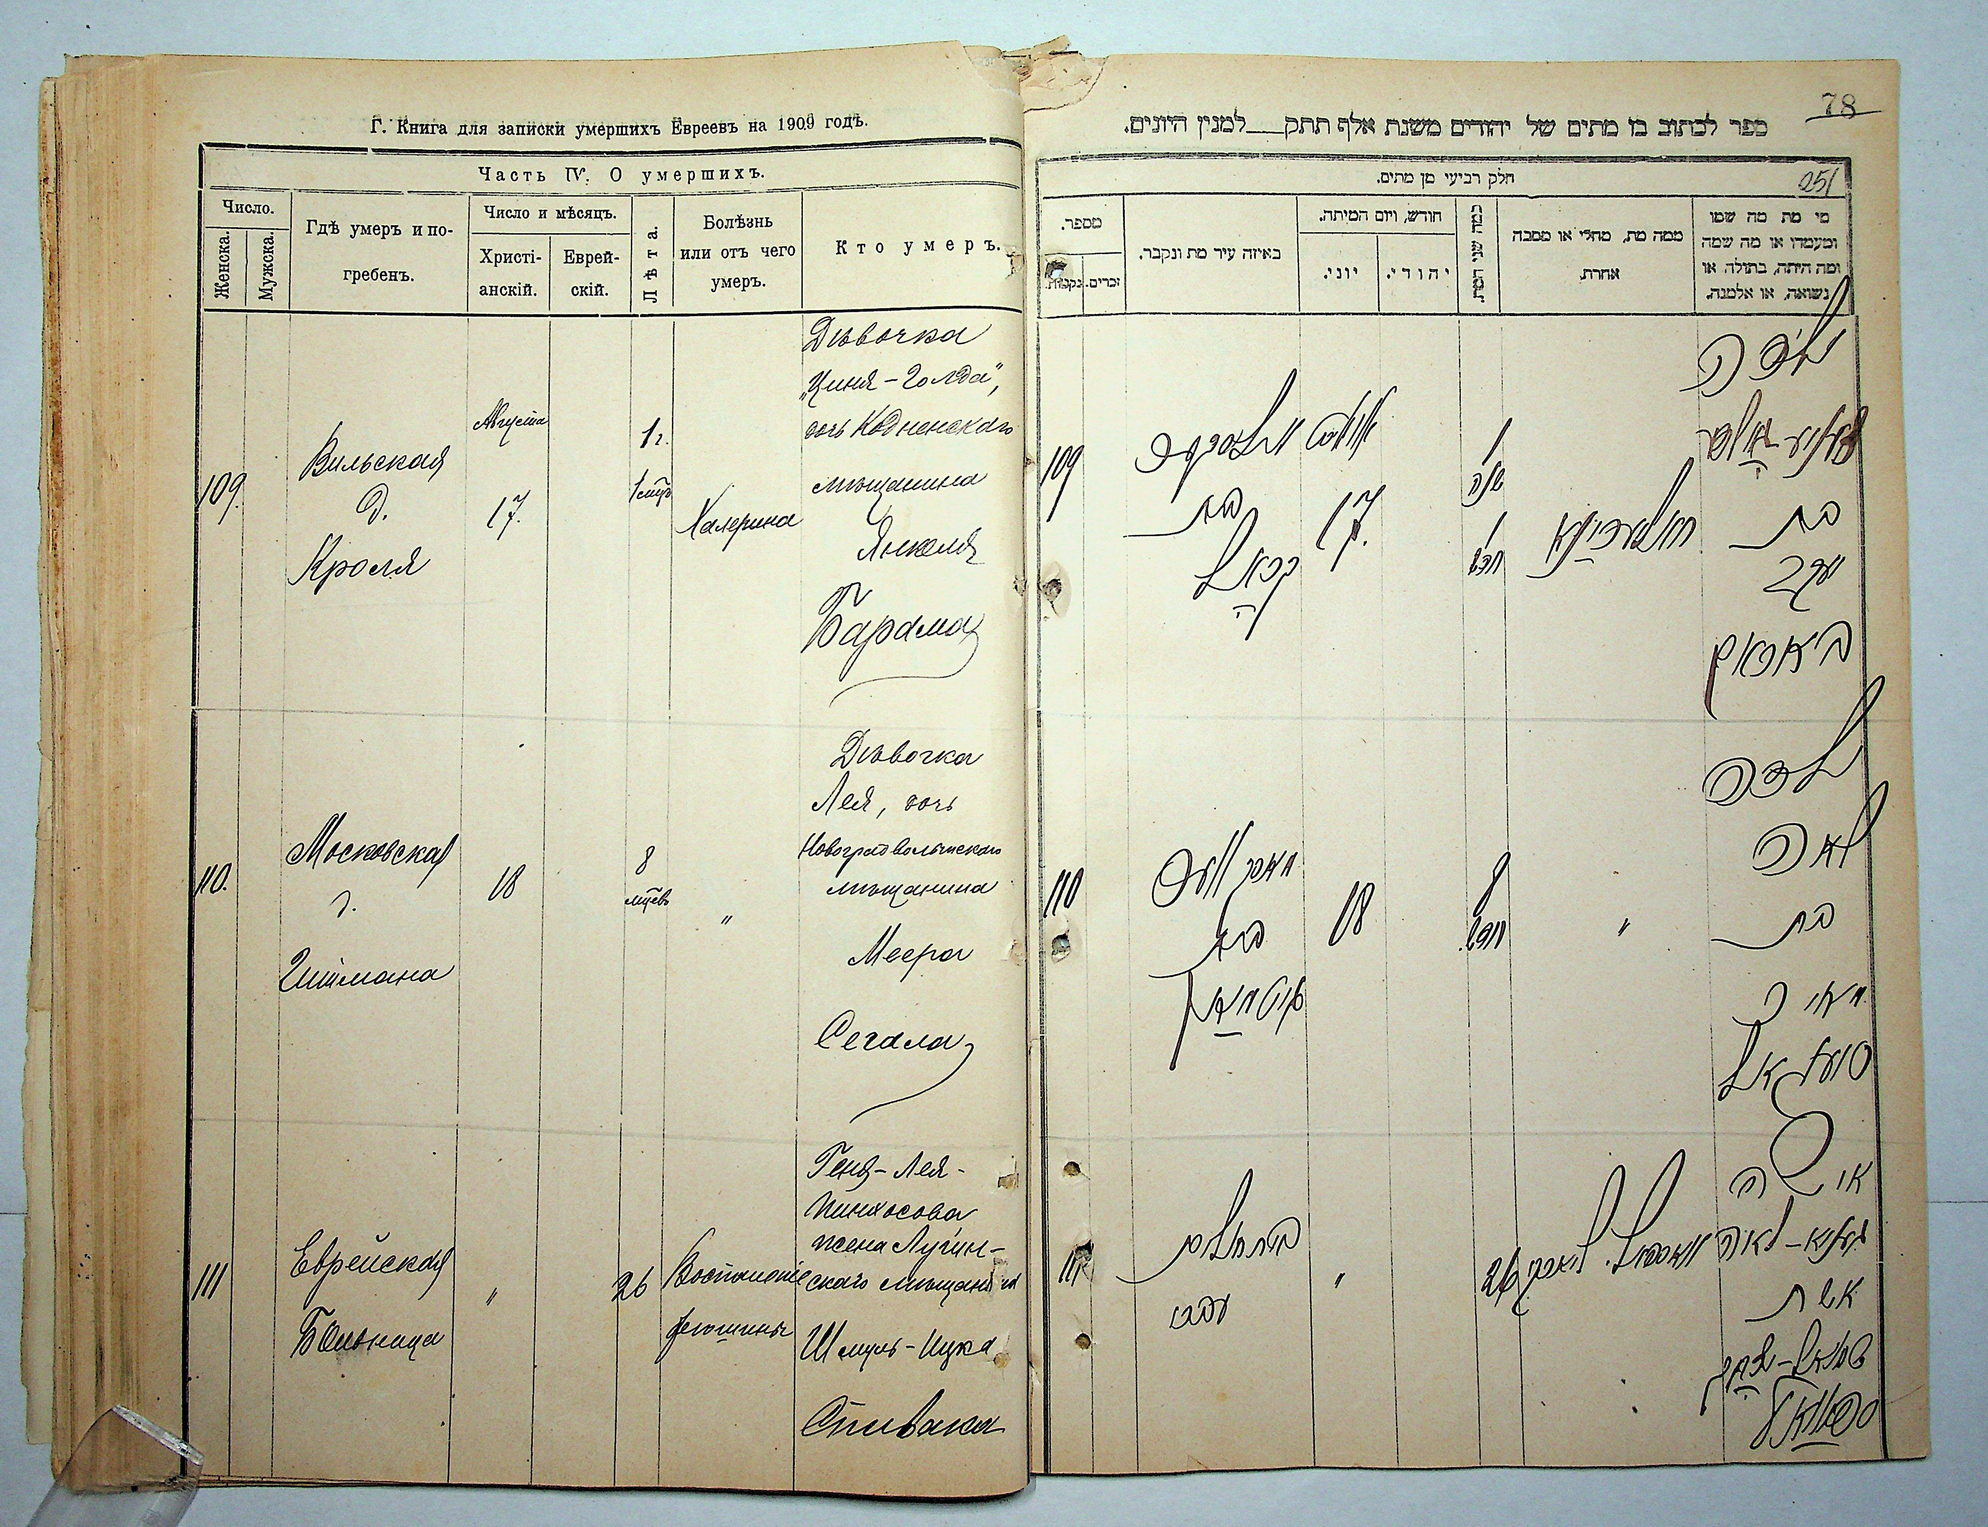 Г. Книга для записки умершихъ Евреевъ на 1909 годъ.
Часть IV. О умершихъ.
Число.
Женска.
Мужска.
Гдѣ умеръ и по-
гребенъ.
Число и мѣсяцъ.
Христі-
анскій.
Еврей-
скій.
Лѣта.
Болѣзнь
или отъ чего
умеръ.
Кто умеръ.
109.
Вильская
д.
Кроля
Августа
17.
1 г.
1 мцъ
Халерина
Дѣвочка
„Циня-Голда",
дочь Кодненскаго
мѣщанина
Янкеля
110.
Московская
д.
Гитмана
18
8
мцевъ
"
Дѣвочка
Лея, дочь
Новоградволынскаго
мѣщанина
Меера
Сегала
111
Еврейская
Больница
"
26
Воспаленіе
Геня-Лея-
Пинхосова
жена Лугин-
скаго мѣщанина
Шмуль-Ицка
Спивака
78
ספר לכתוב בו מתים של יהודים משנת אלף תתק למנין היונים.
חלק רביעי מן מתים.
251
מספר.
נקבות.
זכרים.
באיזה עיר מת ונקבר.
חודש, ויום המיתה.
יוני.
יהודי.
כמה שני המת.
ממה מת, מחלי או מסבה
אחרת.
מי מת מה שמו
ומעמדו או מה שמה
ומה היתה, בתולה או
נשואה, או אלמנה.
109
בית
17.
1
שנה
1
חדש
ילדה
בת
יעקב
110
בית
18
8
חדש.
"
ילדה
לאה
בת
מאיר
111
בית חולים
"
26
אשה
אשת